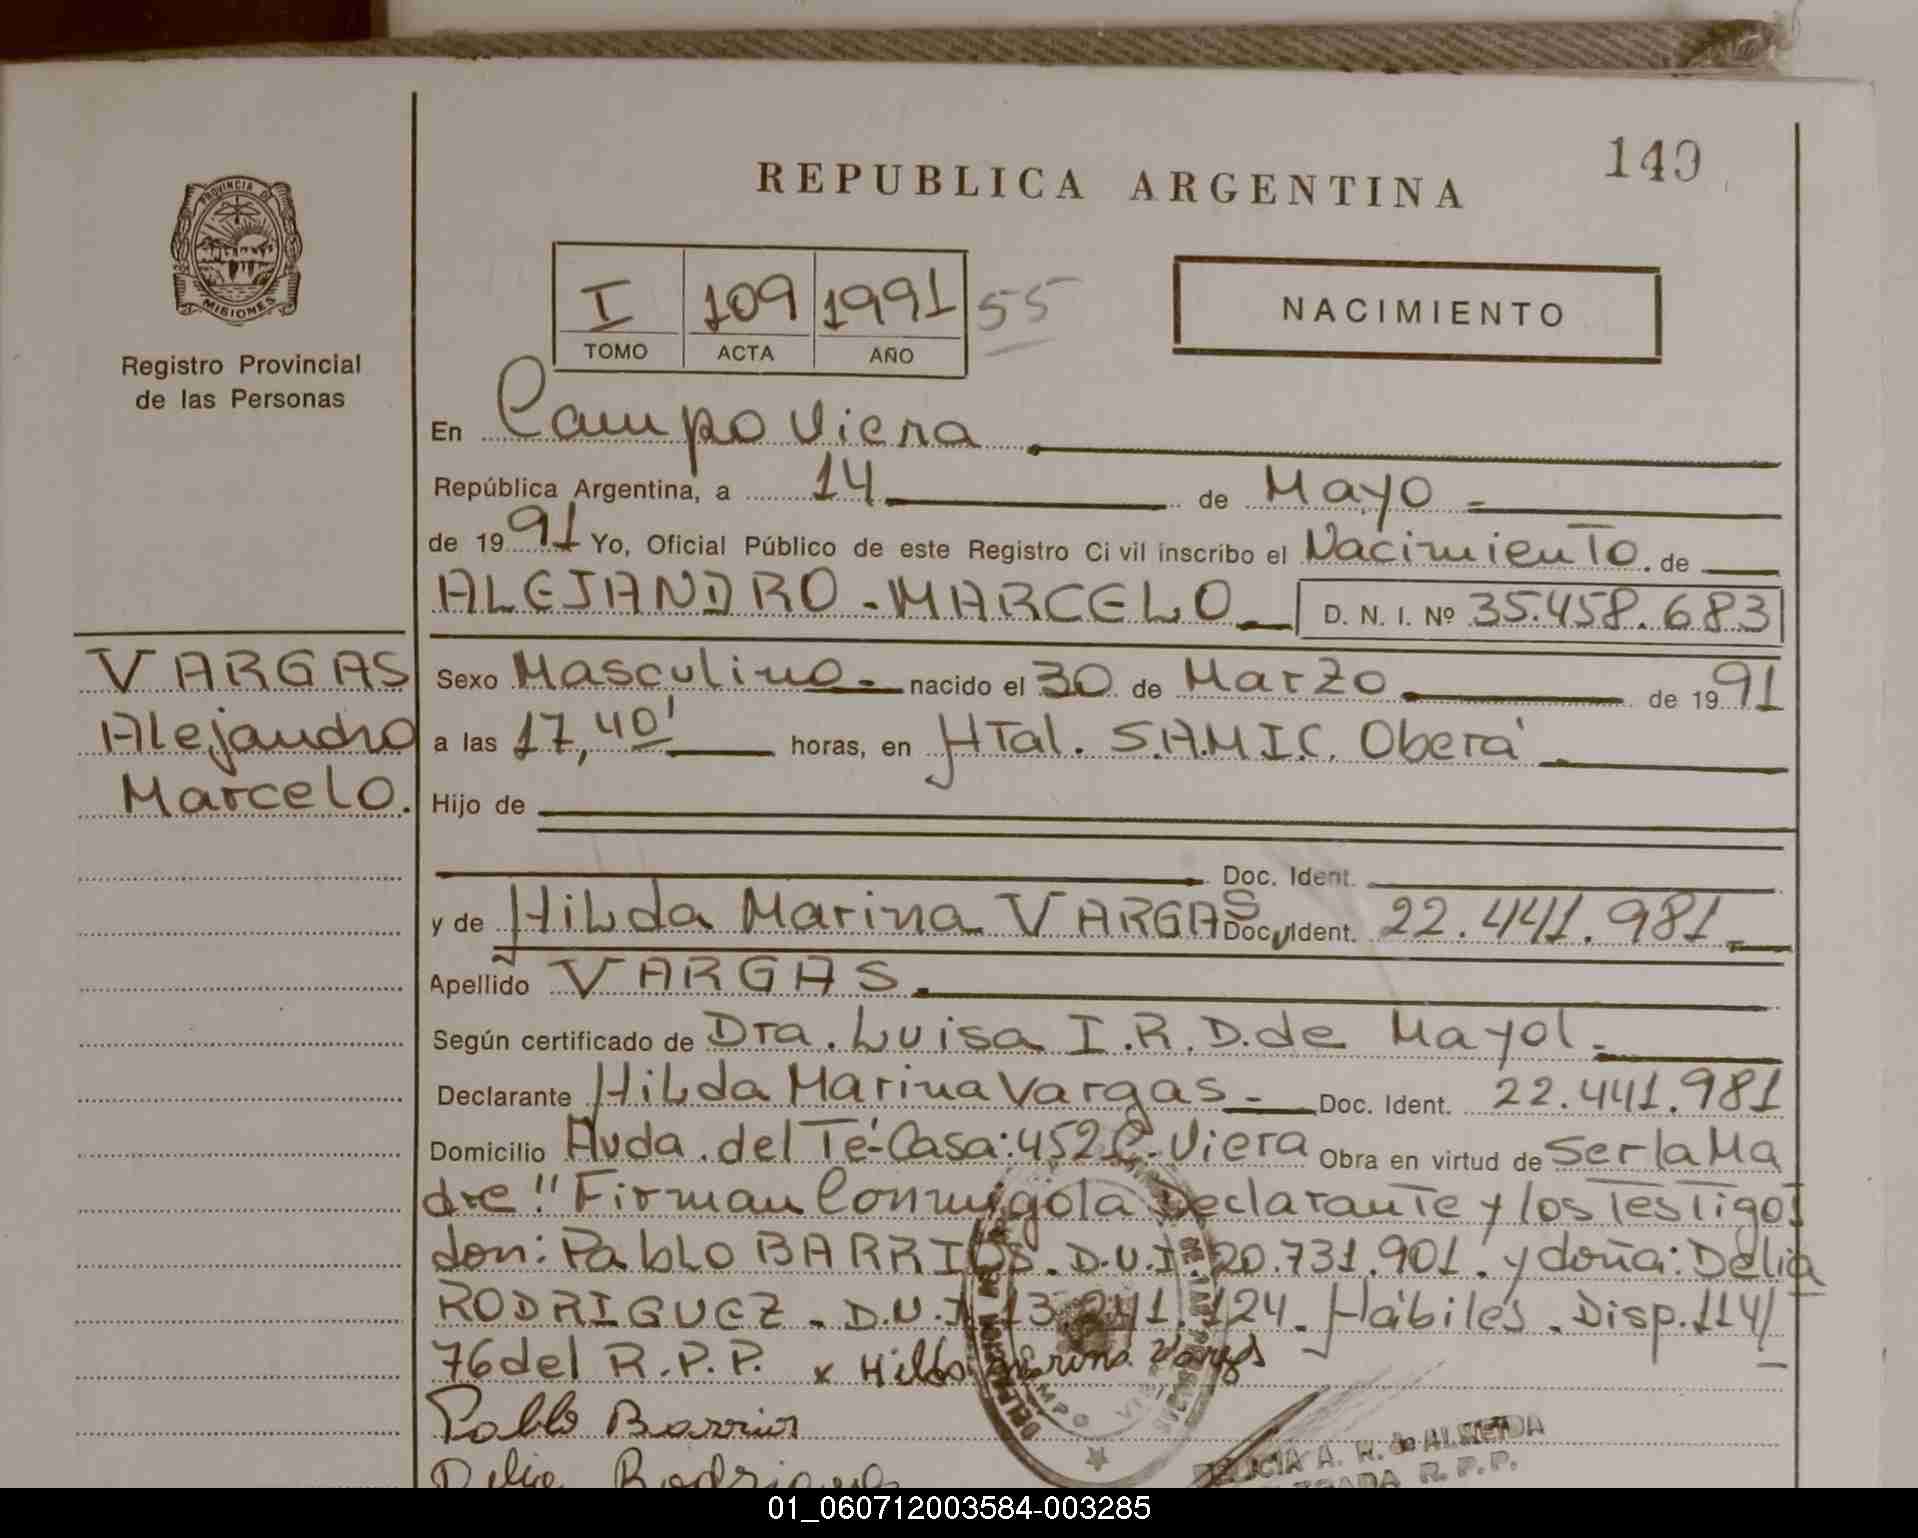 REPUBLICA ARGENTINA
149
PROVINCIA DE
MISIONES
Registro Provincial
de las Personas
I 109 1991 55
TOMO ACTA AÑO
NACIMIENTO
En Campo Viera
República Argentina, a 14 de Mayo
de 1991 Yo, Oficial Público de este Registro Civil inscribo el Nacimiento de
ALEJANDRO - MARCELO D. N. I. Nº 35.458.683
VARGAS
Alejandro
Marcelo.
Sexo Masculino. nacido el 30 de Marzo de 1991
a las 17,40' horas, en Htal. S.A.M.I.C. Oberá
Hijo de
Doc. Ident.
y de Hilda Marina VARGAS Doc. Ident. 22.441.981
Apellido VARGAS.
Según certificado de Dra. Luisa I.R.D. de Mayol.
Declarante Hilda Marina Vargas - Doc. Ident. 22.441.981
Domicilio Avda. del Té-Casa: 452 C. Viera Obra en virtud de Ser la Ma
dre!! Firman Conmigo la Declarante y los Testigos
don: Pablo BARRIOS. D.U.I. 20.731.901. y doña: Delia
RODRIGUEZ - D.U.I. 13.241.124. Hábiles. Disp. 114/
76 del R.P.P. x Hilda marina Vargas
Pablo Barrios
Delia Rodriguez
A. R. de ALMEIDA
R. P. P.
01_060712003584-003285